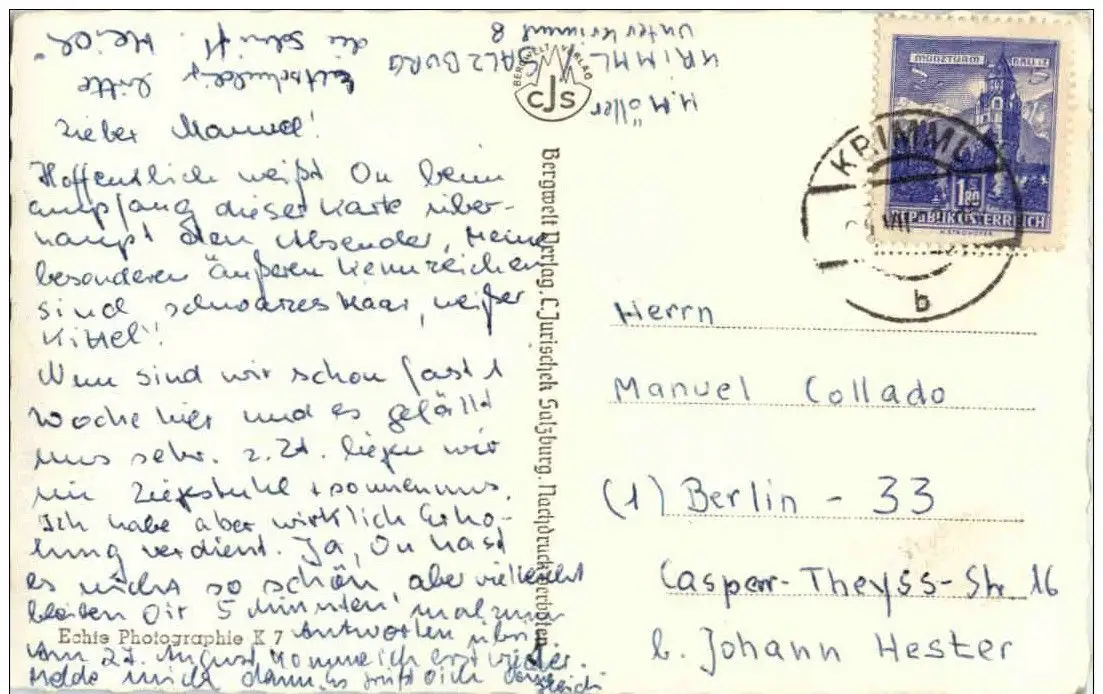 Lieber Manuel!
Hoffentlich weißt Du beim
Empfang dieser Karte über-
haupt den Absender, Meine
besonderen äußeren Kennzeichen
sind schwarzes Haar, weißer
Kittel!
Nun sind wir schon fast 1
Woche hier und es gefällt
uns sehr. z. Zt. liegen wir
im Liegestuhl + sonnen uns.
Ich habe aber wirklich Erho-
lung verdient. Ja, Du hast
es nicht so schön, aber vielleicht
bleiben Dir 5 Minuten mal zum
Antworten übrig
Am 27. August komme ich erst wieder.
Melde mich dann
gleich
Entschuldige bitte
die Schrift. Heide
H. Möller
KRIMML / SALZBURG
Unterkrimml 8
BERGWELT VERLAG
CJS
Bergwelt Verlag, C. Jurischek Salzburg. Nachdruck verboten
Echte Photographie K 7
MÜNZTURM HALL i. T.
1.80
REPUBLIK ÖSTERREICH
KRIMML
VIII
b
Herrn
Manuel Collado
(1) Berlin - 33
Casper-Theyss-Str. 16
b. Johann Hester